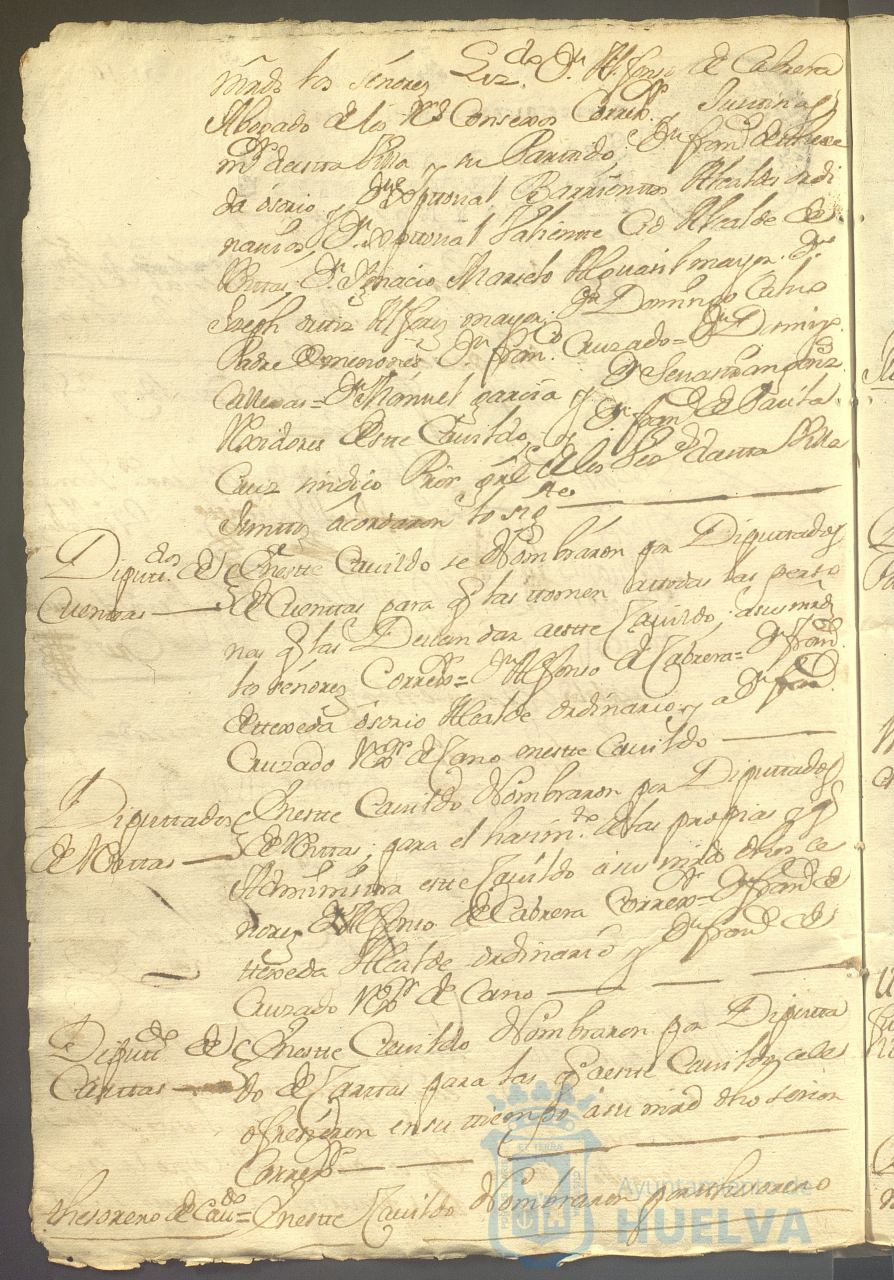 mrds los señores Lizdo Dn Alfonso de Cabrera
Abogado de los Rs Consexos Correxr y Justicia
mr de esta Villa y su Partido, Dn franco de texe
da ósorio y Barrientos Alcaldes ordi
narios, Dn Valiente Cid Alcalde de
Dn Ygnacio Alguasil mayor. Dn
Joseph Alferez mayor. Dn Domingo Calvo
Padre de menores. Dn franco Cruzado = Dn
= Dn Manuel garcia y Dn Sevastian
Rexidores de este Cavildo, y Dn franco de Paula
Cruz sindico Pror gral de los de esta Villa
Juntos acordaron lo sigte
Diputtdos de
Cuenttas
En este Cavildo se Nombraron por Diputtados
de Cuenttas para q las tomen a todas las perso
nas q las Devan dar a este Cavildo, a sus mrds
los señores Correxr = Dn Alfonso de Cabrera = Dn franco
de texeda ósorio Alcalde ordinario y a Dn franco
Cruzado Rexor de Cano en este Cavildo
Diputtados
de Renttas
En este Cavildo Nombraron por Diputtados
de Renttas, para el hasimto de las propias y q
Administra este Cavildo a sus mrds dhos se
nores Dn Alfonso de Cabrera Correxr = Dn franco de
texeda Alcalde ordinario y Dn franco de
Cruzado Rexor de Cano
Diputdo de
Carttas
En este Cavildo Nombraron por Diputta
do de Carttas para las q a este Cavildo se le
ofresieren en su tiempo a su mrd dho señor
Correxr
thesorero de Cavdo =
En este Cavildo Nombraron por thesorero
Ayuntamiento de
HUELVA